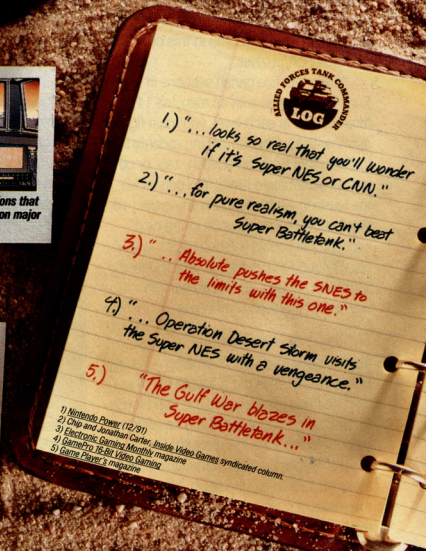 ALLIED FORCES TANK COMMANDER
LOG
1.) "...looks so real that you'll wonder
if it's Super NES or CNN."
2.) "...for pure realism, you can't beat
Super Battletank."
3.) ".. Absolute pushes the SNES to
the limits with this one."
4.) "... Operation Desert Storm visits
the Super NES with a vengeance."
5.) "The Gulf War blazes in
Super Battletank..."
ons that
on major
1) Nintendo Power (12/91)
2) Chip and Jonathan Carter, Inside Video Games syndicated column.
3) Electronic Gaming Monthly magazine
4) GamePro 16-Bit Video Gaming
5) Game Player's magazine